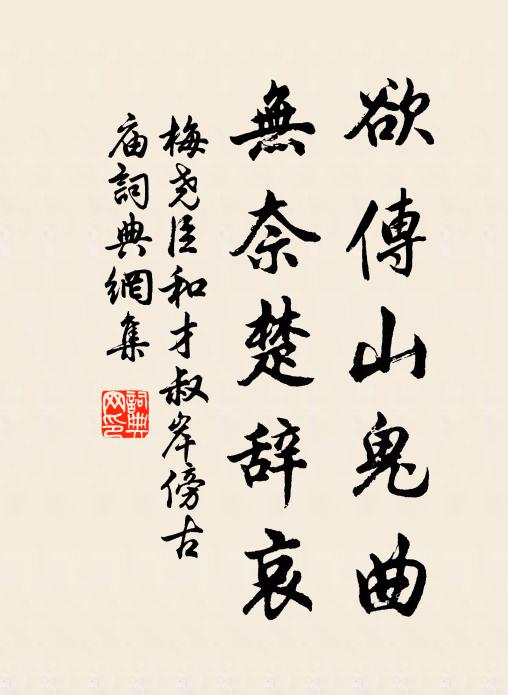 欲傳山鬼曲
無奈楚辞哀
梅尧臣和才叔岸傍古
庙詞典網集
詞典
网印